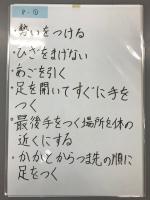 P-①
・勢いをつける
・ひざをまげない
・あごを引く
・足を開いてすぐに手を
つく
・最後手をつく場所を体の
近くにする
・かかとからつま先の順に
足をつく